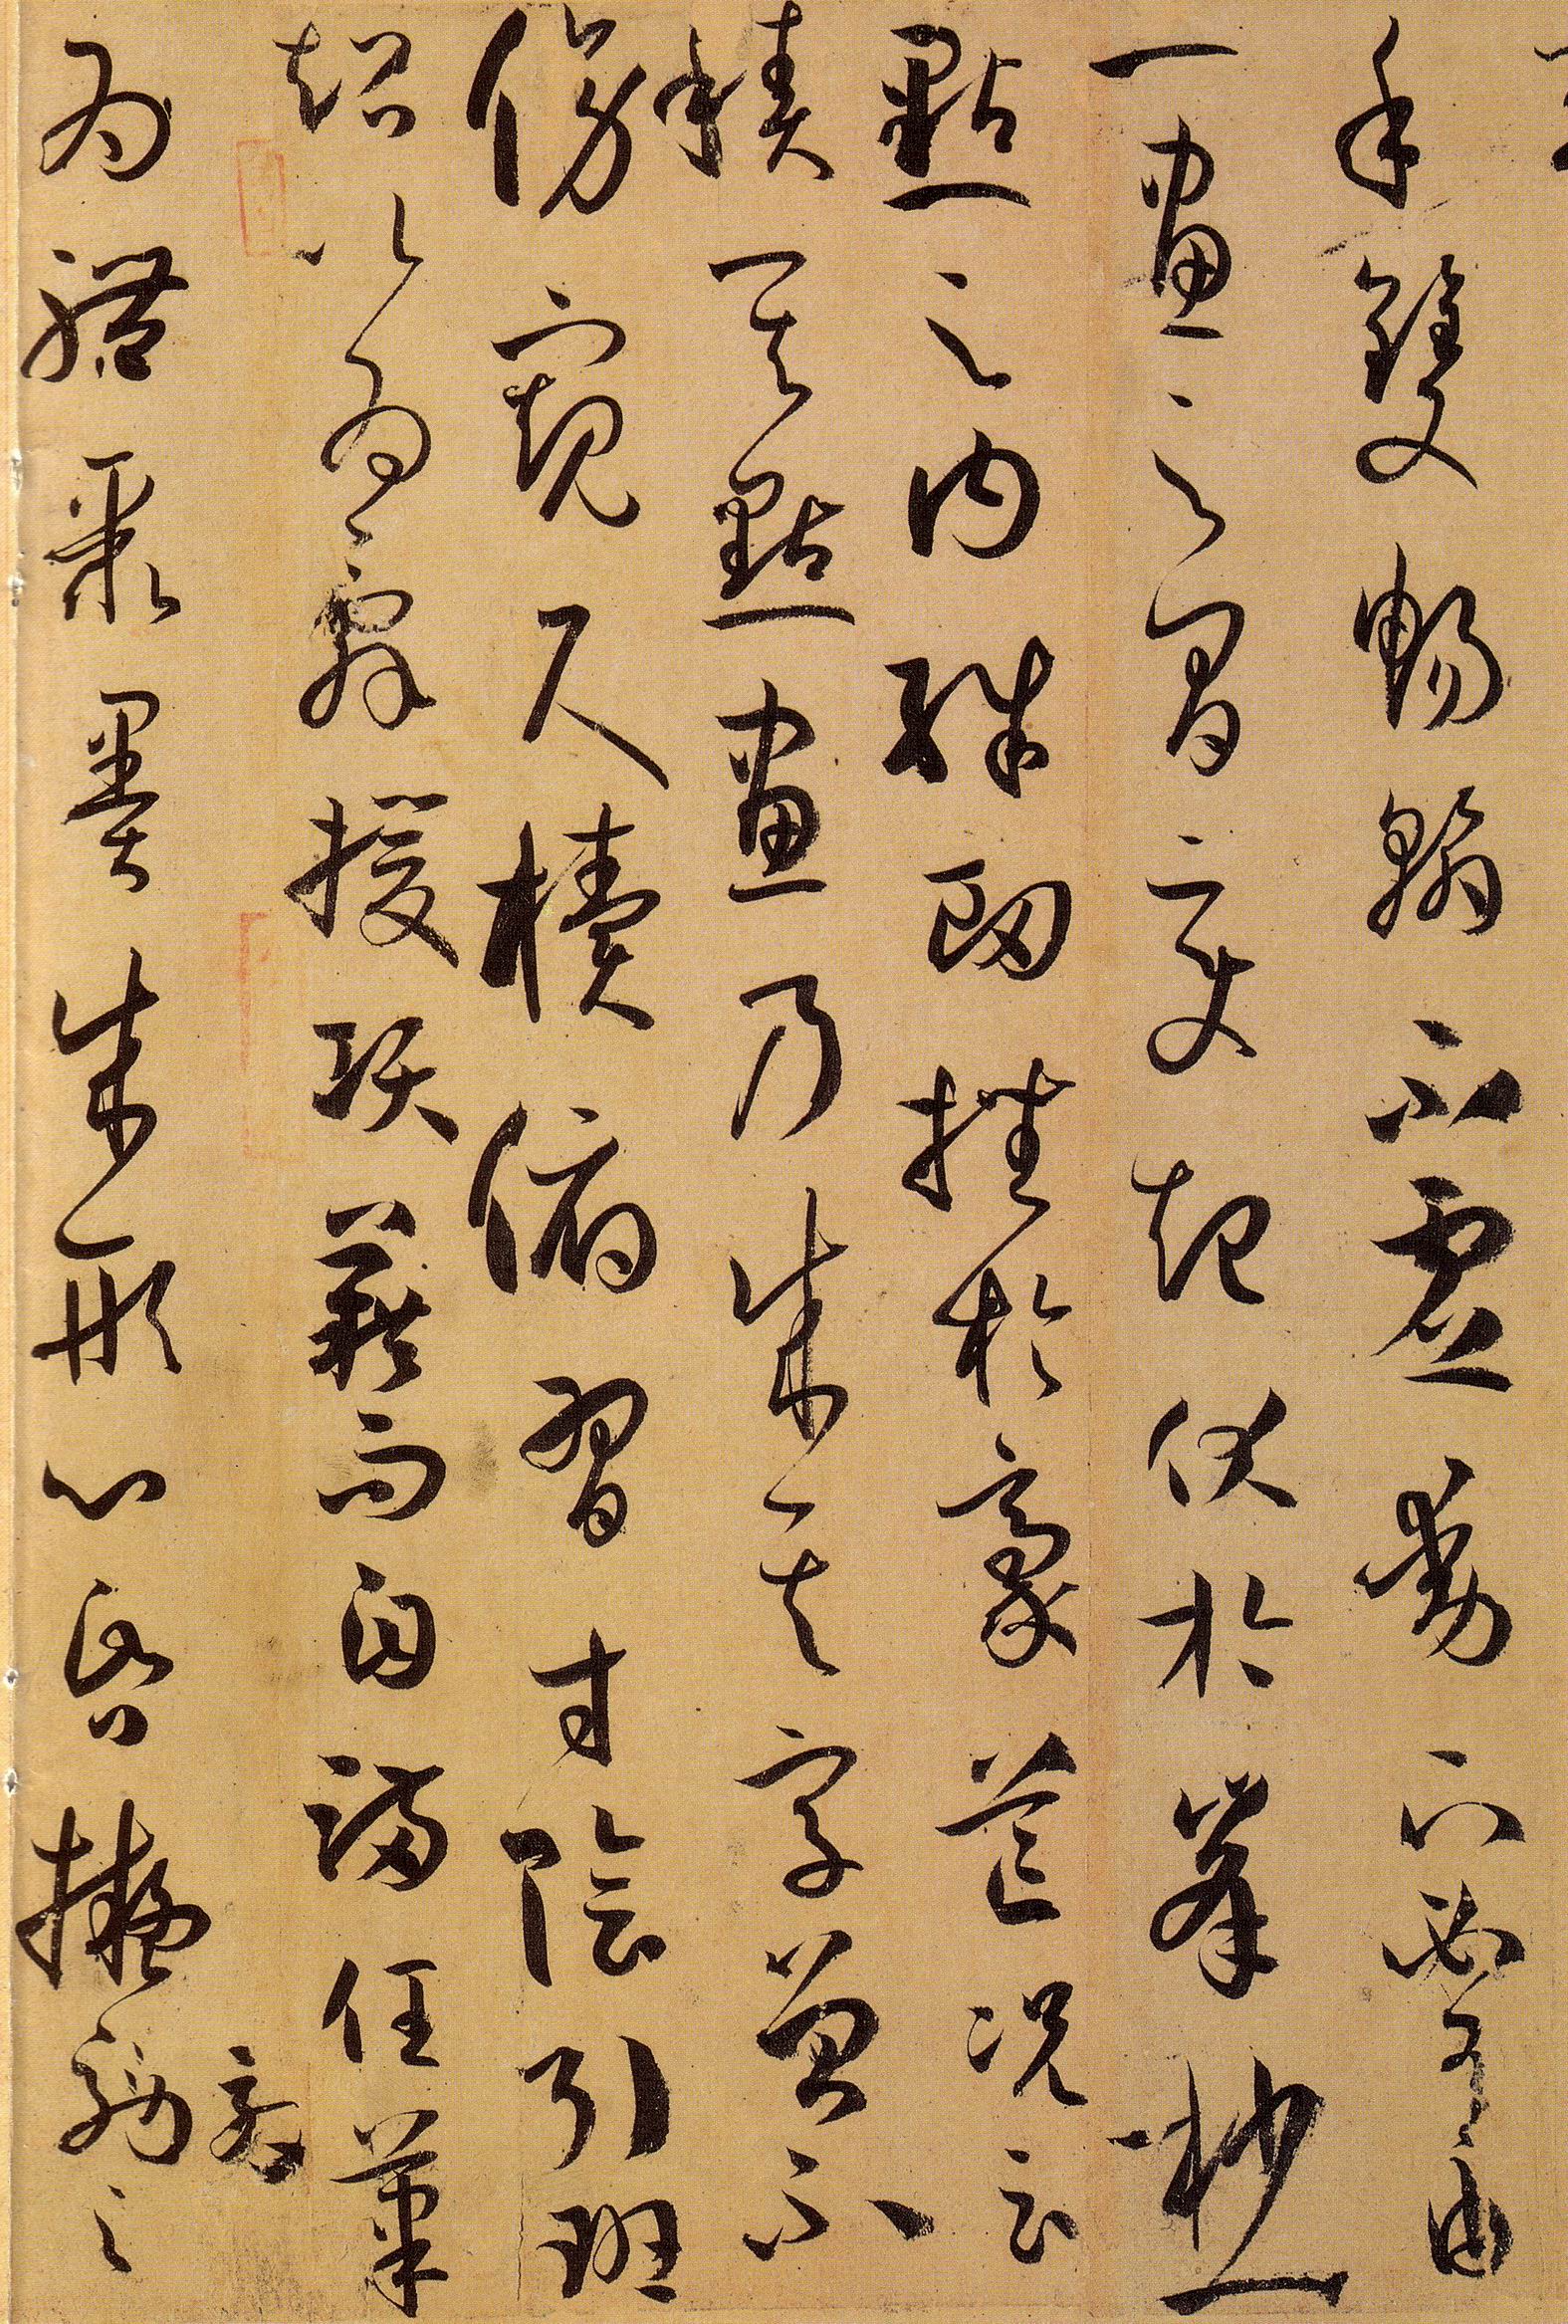 手雙暢翰不虛動下必有由
一畫之間變起伏於峯杪一
點之內殊衄挫於豪芒況云
積其點畫乃成其字曾不
傍窺尺櫝俯習寸陰引班
超以為辭援項籍而自滿任筆
為體聚墨成形心昏擬効之
方